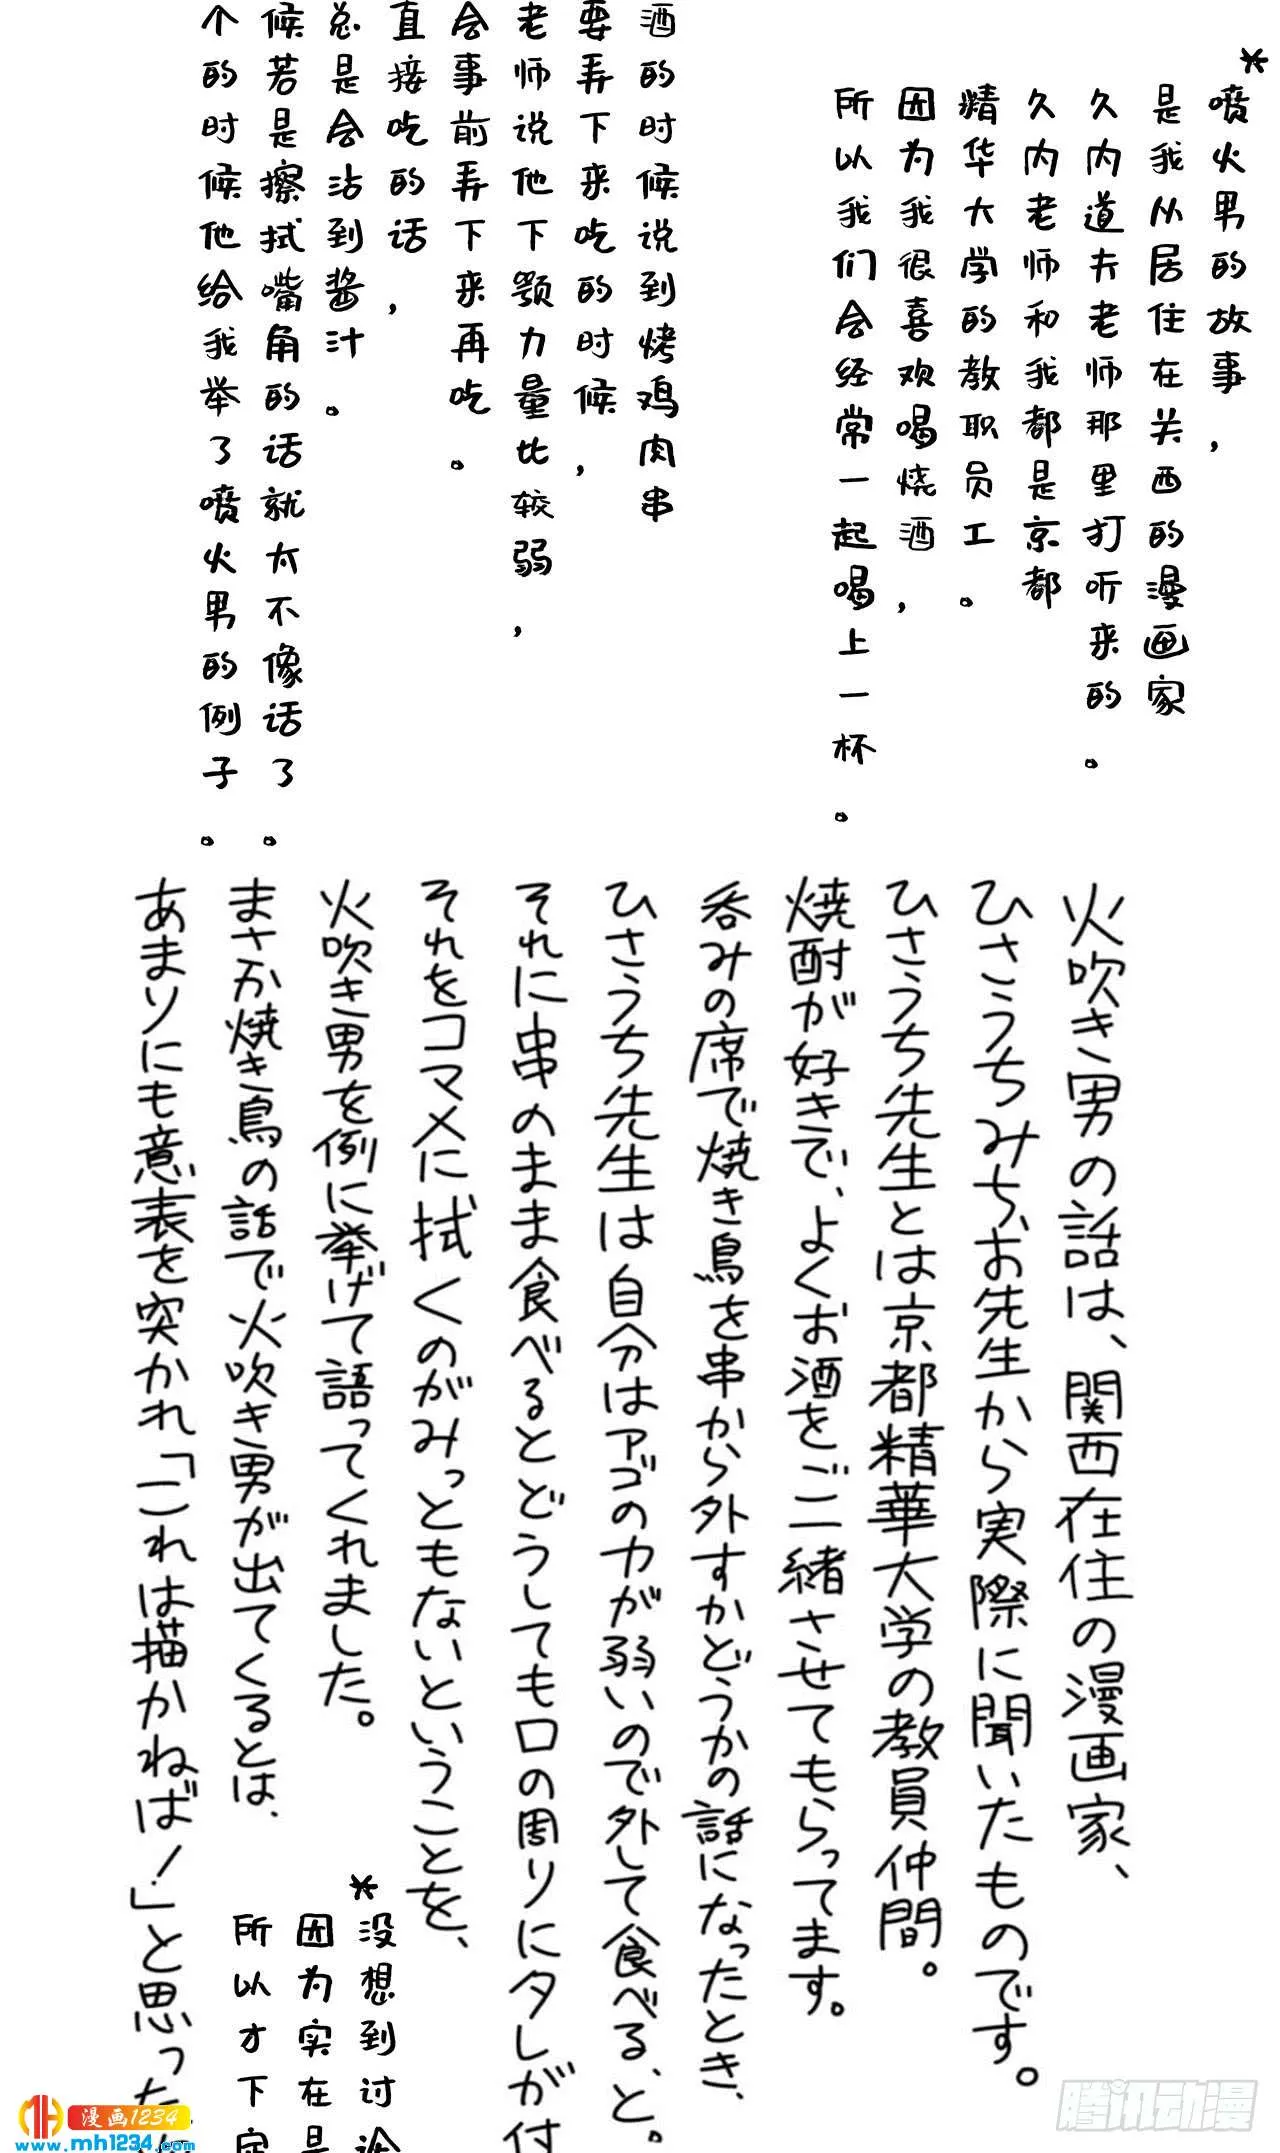 *喷火男的故事，
是我从居住在关西的漫画家
久内道夫老师那里打听来的。
久内老师和我都是京都
精华大学的教职员工。
因为我很喜欢喝烧酒，
所以我们会经常一起喝上一杯。
酒的时候说到烤鸡肉串
要弄下来吃的时候，
老师说他下颚力量比较弱，
会事前弄下来再吃。
直接吃的话，
总是会沾到酱汁。
候若是擦拭嘴角的话就太不像话了。
个的时候他给我举了喷火男的例子。
火吹き男の話は、関西在住の漫画家、
ひさうちみちお先生から実際に聞いたものです。
ひさうち先生とは京都精華大学の教員仲間。
焼酎が好きで、よくお酒をご一緒させてもらってます。
呑みの席で焼き鳥を串から外すかどうかの話になったとき、
ひさうち先生は自分はアゴの力が弱いので外して食べる、と。
それに串のまま食べるとどうしても口の周りにタレが付
それをコマメに拭くのがみっともないということを、
火吹き男を例に挙げて語ってくれました。
まさか焼き鳥の話で火吹き男が出てくるとは、
あまりにも意表を突かれ「これは描かねば！」と思った
*没想到讨论
因为实在是
所以才下定
漫画1234
www.mh1234.com
腾讯动漫